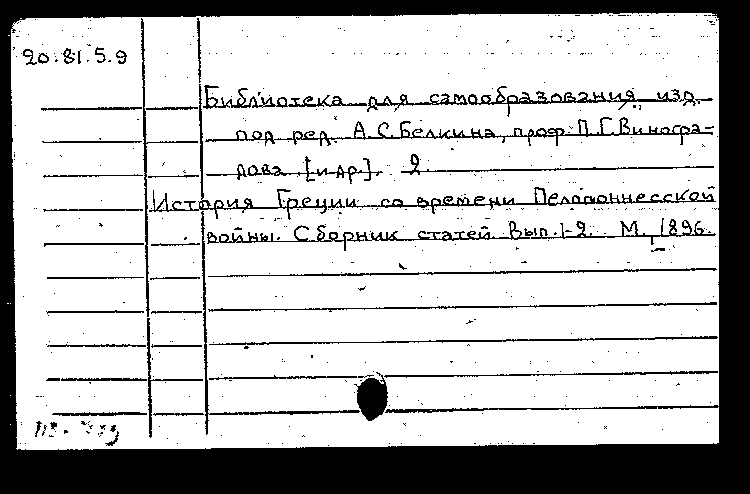 20.81.5.9
Библиотека для самообразования, изд.
под ред. А.С.Белкина, проф. П.Г.Виногра=
дова [и др.]. 2.
История Греции со времени Пелопоннесской
войны. Сборник статей. Вып.1-2. М., 1896.